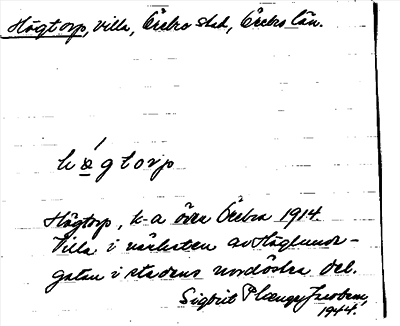 Högtorp, villa, Örebro stad, Örebro län.
hø̀gtorp
Högtorp, k-a övre Örebro 1914.
Villa i närheten av Höglunds-
gatan i stadens nordöstra del.
Sigbrit Plænge Jacobson,
1944.